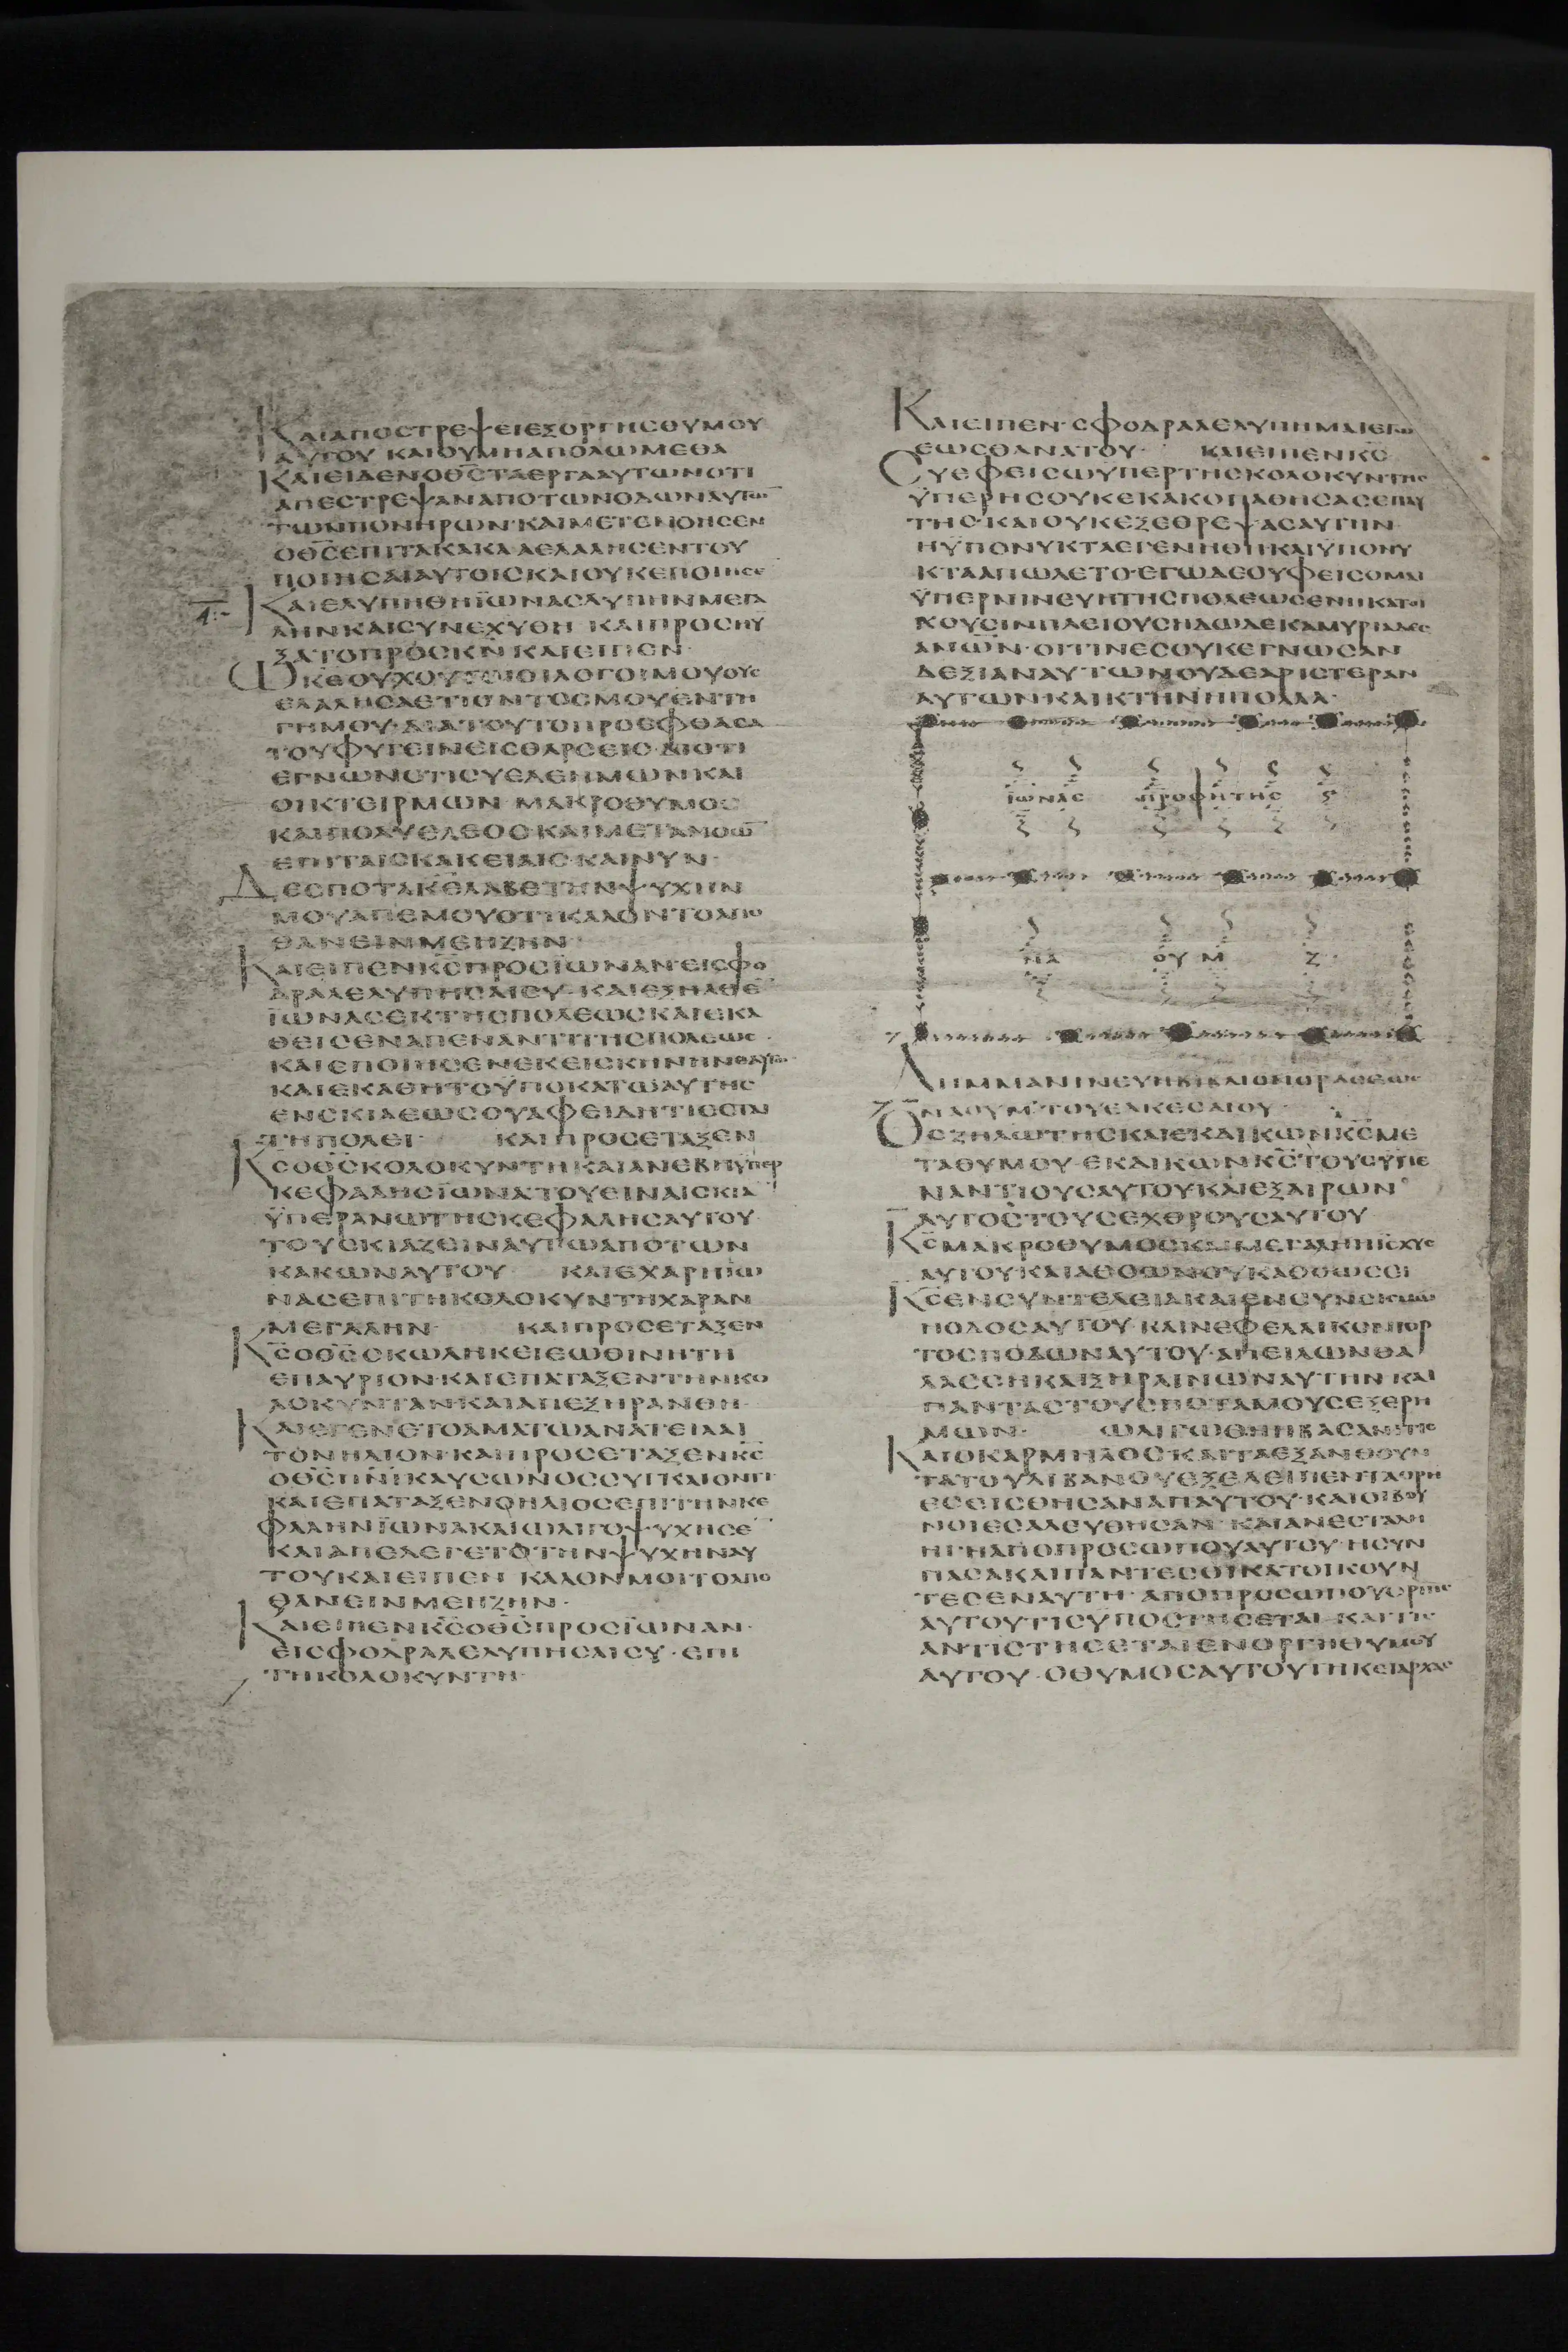 ΚΑΙΑΠΟΣΤΡΕΨΕΙΕΞΟΡΓΗΣΘΥΜΟΥ
ΑΥΤΟΥ ΚΑΙΟΥΜΗΑΠΟΛΩΜΕΘΑ
ΚΑΙΕΙΔΕΝΟΘ̅Σ̅ΤΑΕΡΓΑΑΥΤΩΝΟΤΙ
ΑΠΕΣΤΡΕΨΑΝΑΠΟΤΩΝΟΔΩΝΑΥΤΩ̅
ΤΩΝΠΟΝΗΡΩΝ·ΚΑΙΜΕΤΕΝΟΗΣΕΝ
ΟΘ̅Σ̅ΕΠΙΤΑΚΑΚΑ ΑΕΛΑΛΗΣΕΝΤΟΥ
ΠΟΙΗΣΑΙΑΥΤΟΙΣΚΑΙΟΥΚΕΠΟΙΗΣΕ̅
ΚΑΙΕΛΥΠΗΘΗΪΩΝΑΣΛΥΠΗΝΜΕΓΑ
ΛΗΝΚΑΙΣΥΝΕΧΥΘΗ ΚΑΙΠΡΟΣΗΥ
ΞΑΤΟΠΡΟΣΚ̅Ν̅ ΚΑΙΕΙΠΕΝ·
ΩΚ̅Ε̅ΟΥΧΟΥΤΟΙΟΙΛΟΓΟΙΜΟΥΟΥΣ
ΕΛΑΛΗΣΑΕΤΙΟΝΤΟΣΜΟΥΕΝΤΗ
ΓΗΜΟΥ·ΔΙΑΤΟΥΤΟΠΡΟΕΦΘΑΣΑ
ΤΟΥΦΥΓΕΙΝΕΙΣΘΑΡΣΕΙΣ·ΔΙΟΤΙ
ΕΓΝΩΝΟΤΙΣΥΕΛΕΗΜΩΝΚΑΙ
ΟΙΚΤΕΙΡΜΩΝ ΜΑΚΡΟΘΥΜΟΣ
ΚΑΙΠΟΛΥΕΛΕΟΣ·ΚΑΙΜΕΤΑΝΟΩ̅
ΕΠΙΤΑΙΣΚΑΚΕΙΑΙΣ·ΚΑΙΝΥΝ·
ΔΕΣΠΟΤΑΚ̅Ε̅ΛΑΒΕΤΗΝΨΥΧΗΝ
ΜΟΥΑΠΕΜΟΥΟΤΙΚΑΛΟΝΤΟΑΠΟ
ΘΑΝΕΙΝΜΕΗΖΗΝ·
ΚΑΙΕΙΠΕΝΚ̅Σ̅ΠΡΟΣΪΩΝΑΝ·ΕΙΣΦΟ
ΔΡΑΛΕΛΥΠΗΣΑΙΣΥ·ΚΑΙΕΞΗΛΘΕ̅
ΪΩΝΑΣΕΚΤΗΣΠΟΛΕΩΣΚΑΙΕΚΑ
ΘΕΙΣΕΝΑΠΕΝΑΝΤΙΤΗΣΠΟΛΕΩΣ·
ΚΑΙΕΠΟΙΗΣΕΝΕΚΕΙΣΚΗΝΗΝΕΑΥΤΩ
ΚΑΙΕΚΑΘΗΤΟΫΠΟΚΑΤΩΑΥΤΗΣ
ΕΝΣΚΙΑΕΩΣΟΥΑΦΕΙΔΗΤΙΕΣΤΑΙ
ΤΗΠΟΛΕΙ· ΚΑΙΠΡΟΣΕΤΑΞΕΝ
Κ̅Σ̅ΟΘ̅Σ̅ΚΟΛΟΚΥΝΤΗΚΑΙΑΝΕΒΗΫΠΕΡ
ΚΕΦΑΛΗΣΪΩΝΑΤΟΥΕΙΝΑΙΣΚΙΑ̅
ΫΠΕΡΑΝΩΤΗΣΚΕΦΑΛΗΣΑΥΤΟΥ
ΤΟΥΣΚΙΑΖΕΙΝΑΥΤΩΑΠΟΤΩΝ
ΚΑΚΩΝΑΥΤΟΥ ΚΑΙΕΧΑΡΗΪΩ
ΝΑΣΕΠΙΤΗΚΟΛΟΚΥΝΤΗΧΑΡΑΝ
ΜΕΓΑΛΗΝ ΚΑΙΠΡΟΣΕΤΑΞΕΝ
Κ̅Σ̅ΟΘ̅Σ̅ΣΚΩΛΗΚΕΙΕΩΘΙΝΗΤΗ
ΕΠΑΥΡΙΟΝ·ΚΑΙΕΠΑΤΑΞΕΝΤΗΝΚΟ
ΛΟΚΥΝΤΑΝ·ΚΑΙΑΠΕΞΗΡΑΝΘΗ·
ΚΑΙΕΓΕΝΕΤΟΑΜΑΤΩΑΝΑΤΕΙΛΑΙ
ΤΟΝΗΛΙΟΝ·ΚΑΙΠΡΟΣΕΤΑΞΕΝΚ̅Σ̅
ΟΘ̅Σ̅ΠΝ̅Ι̅ΚΑΥΣΩΝΟΣΣΥΓΚΑΙΟΝΤΙ·
ΚΑΙΕΠΑΤΑΞΕΝΟΗΛΙΟΣΕΠΙΤΗΝΚΕ
ΦΑΛΗΝΪΩΝΑΚΑΙΩΛΙΓΟΨΥΧΗΣΕ̅
ΚΑΙΑΠΕΛΕΓΕΤΟΤΗΝΨΥΧΗΝΑΥ
ΤΟΥΚΑΙΕΙΠΕΝ ΚΑΛΟΝΜΟΙΤΟΑΠΟ
ΘΑΝΕΙΝΜΕΗΖΗΝ·
ΚΑΙΕΙΠΕΝΚ̅Σ̅ΟΘ̅Σ̅ΠΡΟΣΪΩΝΑΝ·
ΕΙΣΦΟΔΡΑΛΕΛΥΠΗΣΑΙΣΥ·ΕΠΙ
ΤΗΚΟΛΟΚΥΝΤΗ·
ΚΑΙΕΙΠΕΝ·ΣΦΟΔΡΑΛΕΛΥΠΗΜΑΙΕΓΩ
ΕΩΣΘΑΝΑΤΟΥ· ΚΑΙΕΙΠΕΝΚ̅Σ̅
ΣΥΕΦΕΙΣΩΥΠΕΡΤΗΣΚΟΛΟΚΥΝΤΗΣ
ΫΠΕΡΗΣΟΥΚΕΚΑΚΟΠΑΘΗΣΑΣΕΠΑΥ
ΤΗΣ·ΚΑΙΟΥΚΕΞΕΘΡΕΨΑΣΑΥΤΗΝ
ΗΫΠΟΝΥΚΤΑΕΓΕΝΗΘΗΚΑΙΫΠΟΝΥ
ΚΤΑΑΠΩΛΕΤΟ·ΕΓΩΔΕΟΥΦΕΙΣΟΜΑΙ
ΫΠΕΡΝΙΝΕΥΗΤΗΣΠΟΛΕΩΣΕΝΗΚΑΤΟΙ
ΚΟΥΣΙΝΠΛΕΙΟΥΣΗΔΩΔΕΚΑΜΥΡΙΑΔΕΣ
ΑΝΩ̅Ν̅·ΟΙΤΙΝΕΣΟΥΚΕΓΝΩΣΑΝ
ΔΕΞΙΑΝΑΥΤΩΝΟΥΔΕΑΡΙΣΤΕΡΑΝ
ΑΥΤΩΝ·ΚΑΙΚΤΗΝΗΠΟΛΛΑ·
ΪΩΝΑΣ ΠΡΟΦΗΤΗΣ Ϛ
ΝΑ ΟΥΜ Ζ
ΛΗΜΜΑΝΙΝΕΥΗΒΙΒΛΙΟΝΟΡΑΣΕΩΣ
ΝΑΟΥΜ·ΤΟΥΕΛΚΕΣΑΙΟΥ·
Θ̅Σ̅ΖΗΛΩΤΗΣΚΑΙΕΚΔΙΚΩΝΚ̅Σ̅ΜΕ
ΤΑΘΥΜΟΥ·ΕΚΔΙΚΩΝΚ̅Σ̅ΤΟΥΣΫΠΕ
ΝΑΝΤΙΟΥΣΑΥΤΟΥΚΑΙΕΞΑΙΡΩΝ
ΑΥΤΟΣΤΟΥΣΕΧΘΡΟΥΣΑΥΤΟΥ
Κ̅Σ̅ΜΑΚΡΟΘΥΜΟΣΚΑΙΜΕΓΑΛΗΗΪΣΧΥΣ
ΑΥΤΟΥΚΑΙΑΘΟΩΝΟΥΚΑΘΟΩΣΕΙ
Κ̅Σ̅ΕΝΣΥΝΤΕΛΕΙΑΚΑΙΕΝΣΥΝΣΕΙΣΜΩ
ΗΟΔΟΣΑΥΤΟΥ·ΚΑΙΝΕΦΕΛΑΙΚΟΝΙΟΡ
ΤΟΣΠΟΔΩΝΑΥΤΟΥ·ΑΠΕΙΛΩΝΘΑ
ΛΑΣΣΗΚΑΙΞΗΡΑΙΝΩΝΑΥΤΗΝ ΚΑΙ
ΠΑΝΤΑΣΤΟΥΣΠΟΤΑΜΟΥΣΕΞΕΡΗ
ΜΩΝ· ΩΛΙΓΩΘΗΗΒΑΣΑΝΙΤΙΣ
ΚΑΙΟΚΑΡΜΗΛΟΣΚΑΙΤΑΕΞΑΝΘΟΥΝ
ΤΑΤΟΥΛΙΒΑΝΟΥΕΞΕΛΕΙΠΕΝΤΑΟΡΗ
ΕΣΕΙΣΘΗΣΑΝΑΠΑΥΤΟΥ·ΚΑΙΟΙΒΟΥ
ΝΟΙΕΣΑΛΕΥΘΗΣΑΝ· ΚΑΙΑΝΕΣΤΑΛΗ
ΗΓΗΑΠΟΠΡΟΣΩΠΟΥΑΥΤΟΥ·ΗΣΥΝ
ΠΑΣΑΚΑΙΠΑΝΤΕΣΟΙΚΑΤΟΙΚΟΥΝ
ΤΕΣΕΝΑΥΤΗ· ΑΠΟΠΡΟΣΩΠΟΥΟΡΓΗΣ
ΑΥΤΟΥΤΙΣΥΠΟΣΤΗΣΕΤΑΙ·ΚΑΙΤΙΣ
ΑΝΤΙΣΤΗΣΕΤΑΙΕΝΟΡΓΗΘΥΜΟΥ
ΑΥΤΟΥ·ΟΘΥΜΟΣΑΥΤΟΥΤΗΚΕΙΑΡΧΑΣ